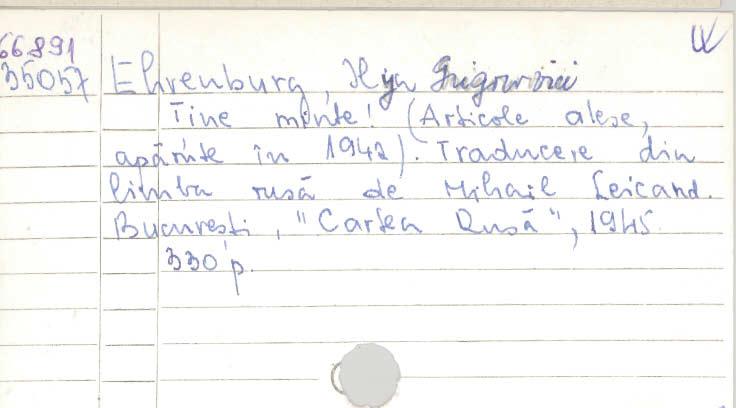 66891
35057 Ehrenburg, Ilya Grigorovici
Tine minte! (Articole alese,
apărute în 1942). Traducere din
limba rusă de Mihail Leicand.
București, "Cartea Rusă", 1945.
330 p.